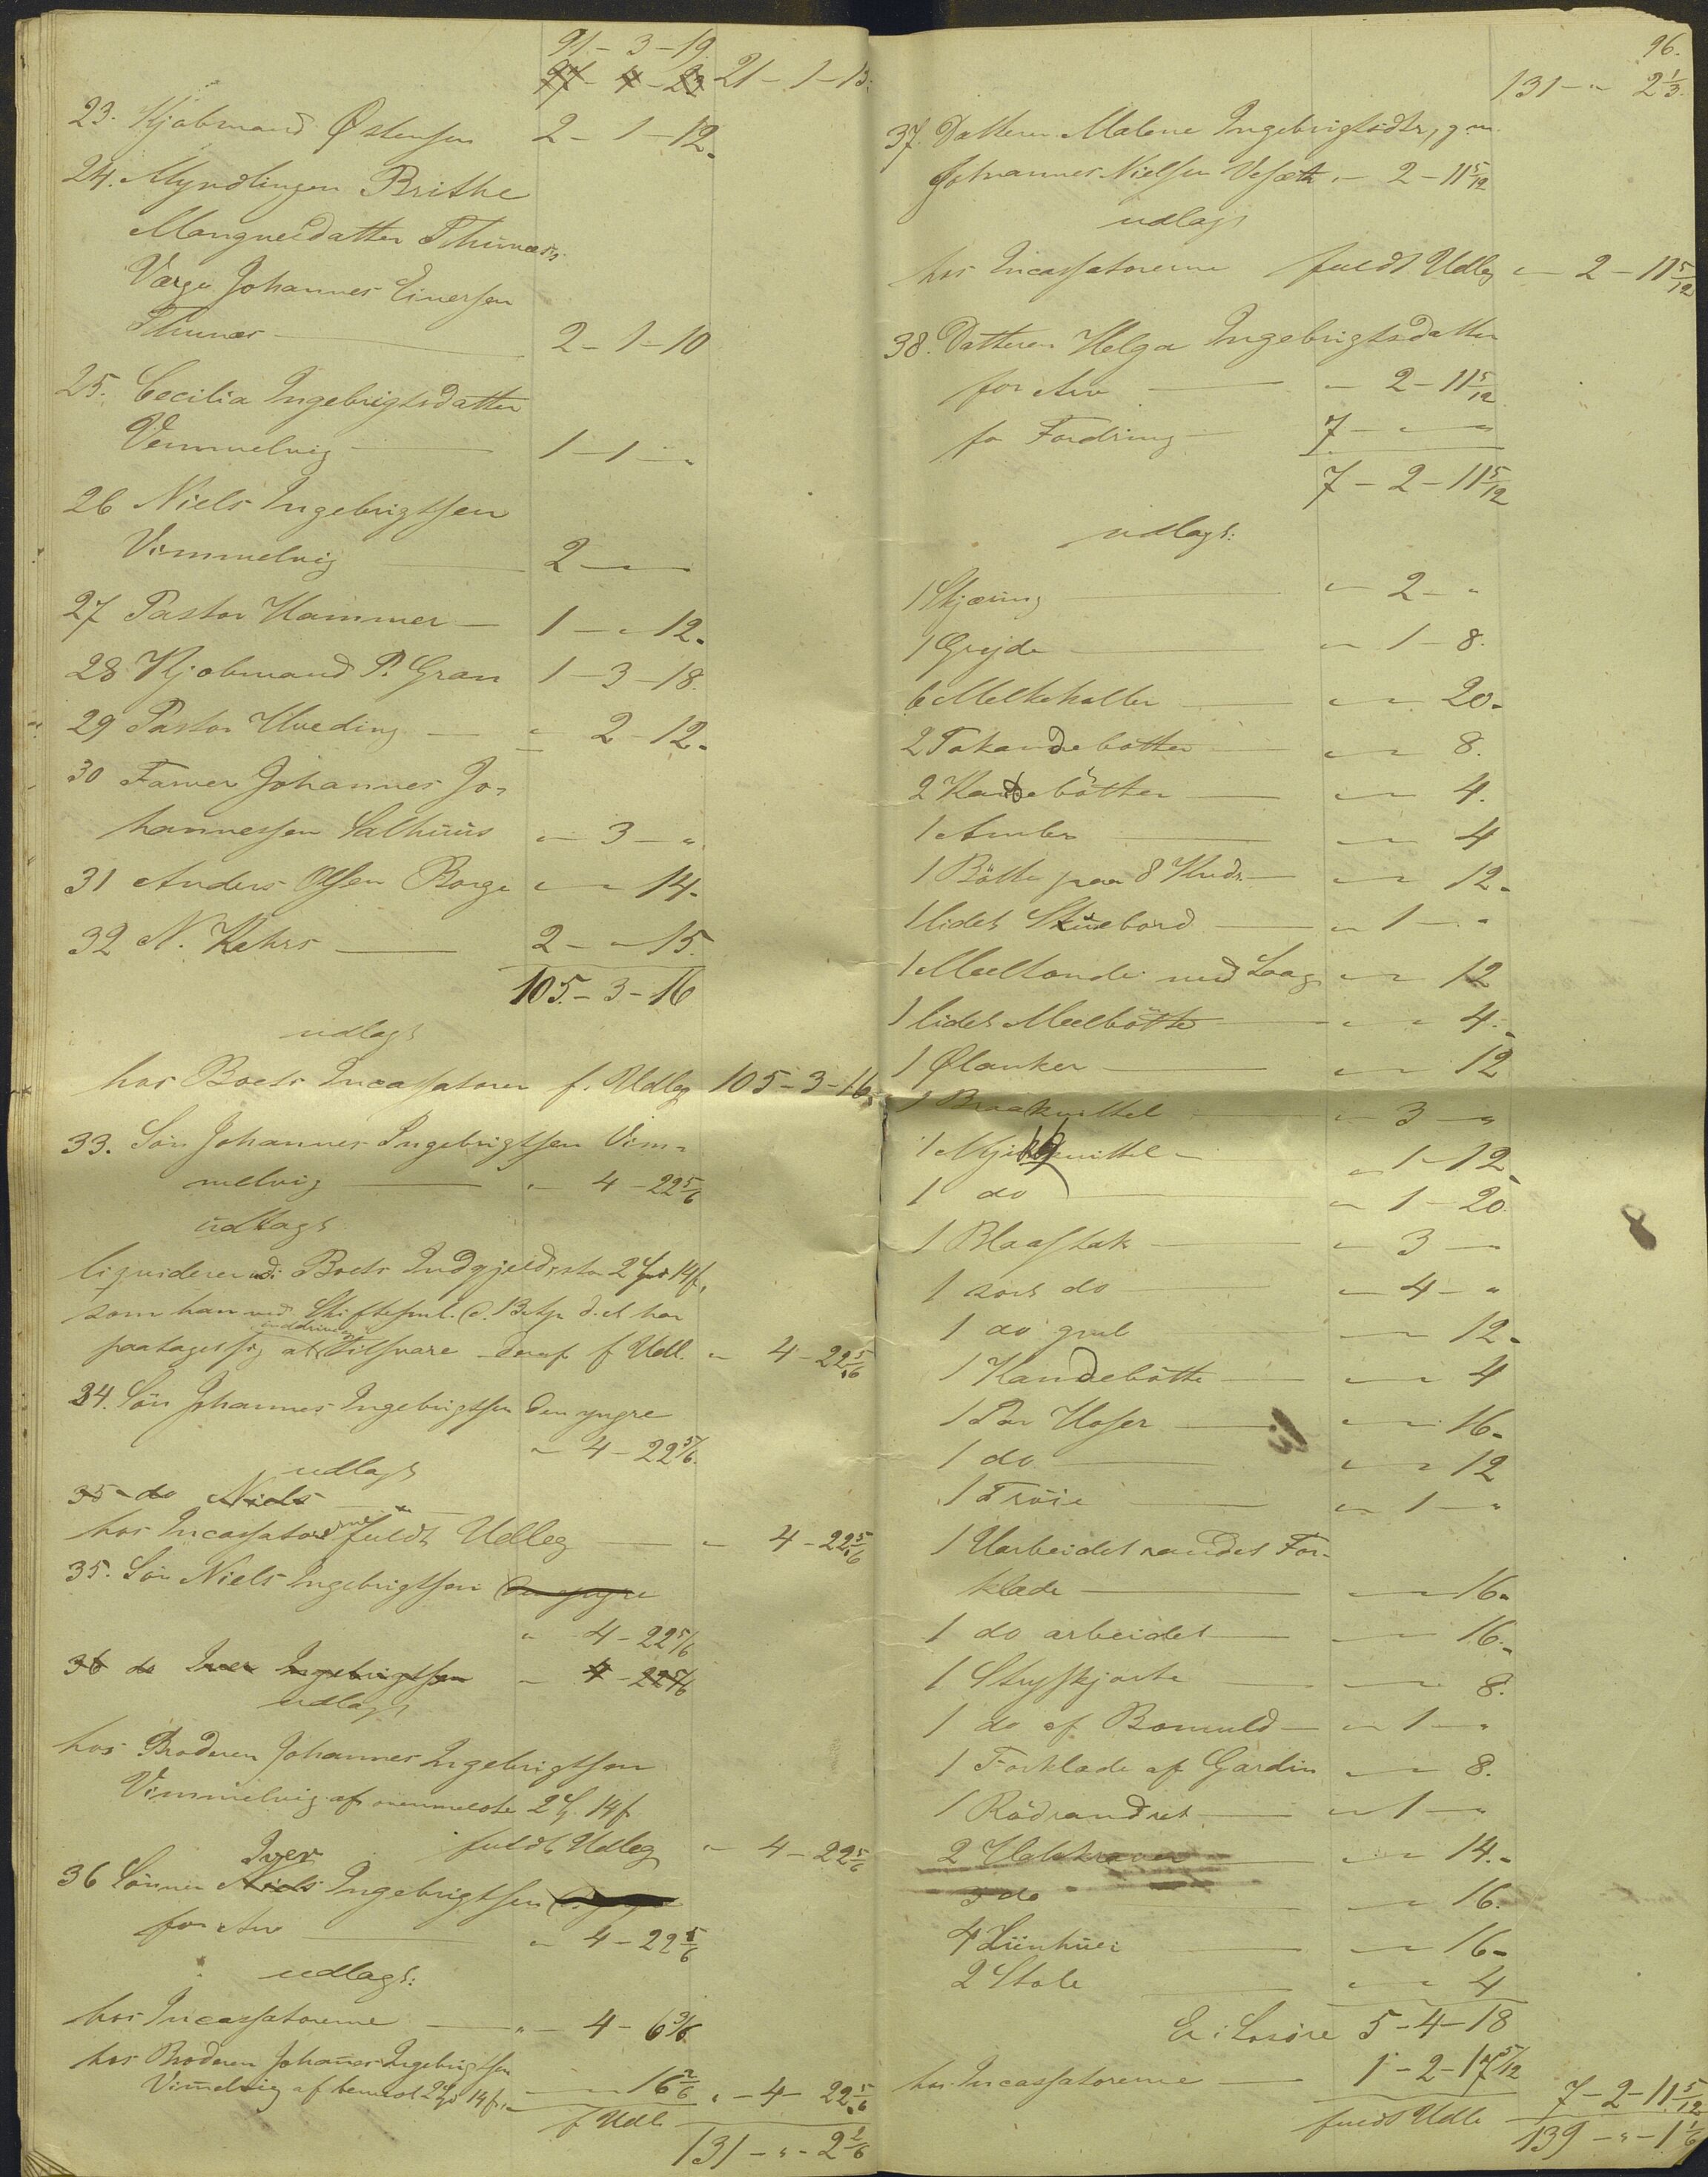 91 - 3 - 19
97 - 4 - 23 21 - 1 - 13.
23. Kjøbmand Østensen 2 - 1 - 12.
24. Myndlingen Brithe
Mangnesdatter Thunæs,
Værge Johannes Einersen
Thunæs 2 - 1 - 10
25. Cecilia Ingebrigtsdatter
Vemmelvig 1 - 1 - "
26 Niels Ingebrigtsen
Vimmelvig 2 - " - "
27 Pastor Hammer 1 - " - 12.
28 Kjobmand P. Gran 1 - 3 - 18.
29 Pastor Hveding " - 2 - 12.
30 Farver Johannes Jo-
hannessen Salhuus " - 3 - "
31 Anders Olsen Borge " - " - 14.
32 N. Kahrs 2 - " - 15.
105 - 3 - 16
udlagt
hos Boets Incassatorer f. Udleg 105 - 3 - 16.
33. Søn Johannes Ingebrigtsen Vim-
melvig " - 4 - 22 5/6
udlagt
liquiderer udi Boets Indgjeld, stor 2 Spd 14 s,
som han ved
paataget sig at inddrive tilsvare deraf f Udl. " - 4 - 22 5/6
34. Søn Johannes Ingebrigtsen den yngre
" - 4 - 22 5/6.
udlagt
35 - do Niels
hos Incassatorerne fuldt Udleg " - 4 - 22 5/6
35. Søn Niels Ingebrigtsen den yngre
" - 4 - 22 5/6
36 do Iver Ingebrigtsen " - 4 - 22 5/6
udlagt
hos Broderen Johannes Ingebrigtsen
Vimmelvig af ovenmeldte 2 Spd. 14 s
fuldt Udleg " - 4 - 22 5/6
Iver
36 Sönnen Niels Ingebrigtsen
for Arv " - 4 - 22 5/6
udlagt:
hos Incassatorerne " - 4 - 6 3/6
hos Broderen Johanes Ingebrigtsen
Vimelvig af bemeldte 2 Spd 14 s. " - " - 16 2/6 " - 4 - 22 5/6
f Udl.
131 - " - 2 2/6
96.
131 - " 2 1/3.
37. Datteren Malene Ingebrigtsdtr, g. m.
Johannes Nielsen Vesæth " - 2 - 11 5/12
udlagt
hos Incassatorerne fuldt Udleg " - 2 - 11 5/12
38. Datteren Helga Ingebrigtsdatter
for Arv " - 2 - 11 5/12
for Fordring 7 - " - "
7 - 2 - 11 5/12
udlagt:
1 Skjæring " - 2 - "
1 Gryde " - 1 - 8.
6 Melkekoller " - " - 20.
2 Tokandebøtter " - " - 8.
2 Kandebötter " - " - 4.
1 Ambar " - " - 4
1 Bötte paa 8 Kndr. " - " - 12.
1 lidet Stuebord " - 1 - "
1 Meeltønde med Laag " - " - 12
1 liden Meelbötte " - " - 4.
1 Ølanker " - " - 12
1 Braakvittel " - 3 - "
1 kvittel " - 1 - 12.
1 do " - 1 - 20
1 Blaastak " - 3 - "
1 sort do " - 4 - "
1 do gul " - " - 12.
1 Kandebötte " - " - 4
1 Par Hoser " - " - 16.
1 do " - " - 12
1 Tröie " - 1 - "
1 Uarbeidet randet For-
klæde " - " - 16.
1 do arbeidet " - " - 16.
1 Stryskjorte " - " - 8.
1 do af Bomuld " - 1 - "
1 Forklæde af Gardin " - " - 8.
1 Rödrandet " - 1 - "
2 Halskraver " - " - 14.
3 do " - " - 16.
4 Liinhuer " - " - 16.
2 Stole " - " - 4
Er i Losöre 5 - 4 - 18
hos Incassatorerne 1 - 2 - 17 5/12
fuldt Udl. 7 - 2 - 11 5/12
139 - " - 1 1/6